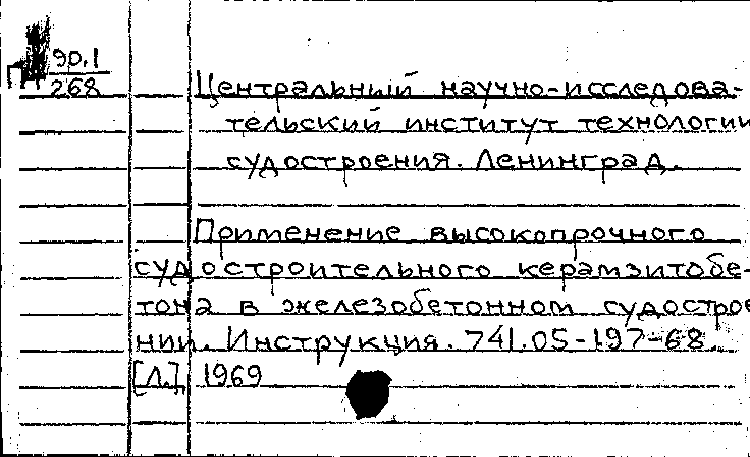 П 90.1
268
Центральный научно-исследова-
тельский институт технологии
судостроения. Ленинград.
Применение высокопрочного
судостроительного керамзитобе-
тона в железобетонном судострое
нии. Инструкция. 741.05-197-68.
[Л.], 1969